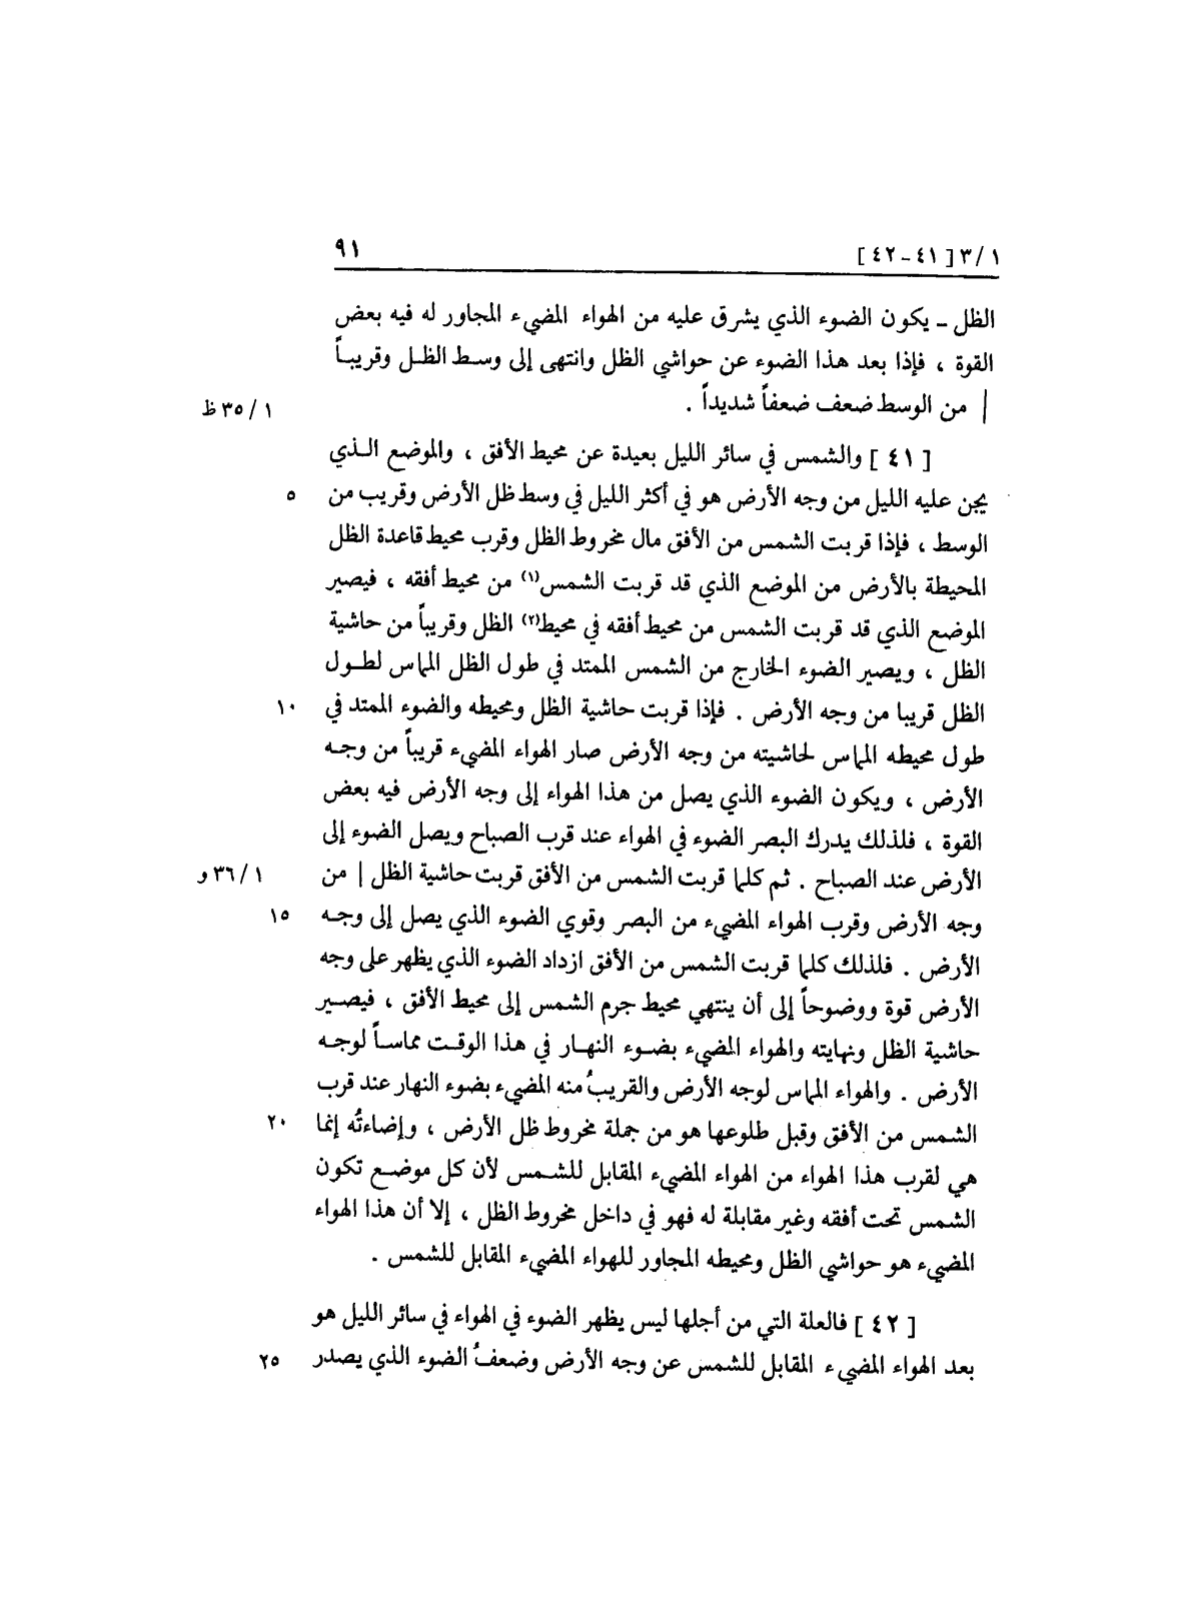 ١ / ٣ [ ٤١ - ٤٢ ] ٩١
الظل ـ يكون الضوء الذي يشرق عليه من الهواء المضيء المجاور له فيه بعض
القوة ، فإذا بعد هذا الضوء عن حواشي الظل وانتهى إلى وسط الظل وقريباً
| من الوسط ضعف ضعفاً شديداً . ١ / ٣٥ ظ
[ ٤١ ] والشمس في سائر الليل بعيدة عن محيط الأفق ، والموضع الذي
يجن عليه الليل من وجه الأرض هو في أكثر الليل في وسط ظل الأرض وقريب من ٥
الوسط ، فإذا قربت الشمس من الأفق مال مخروط الظل وقرب محيط قاعدة الظل
المحيطة بالأرض من الموضع الذي قد قربت الشمس(١) من محيط أفقه ، فيصير
الموضع الذي قد قربت الشمس من محيط أفقه في محيط(٢) الظل وقريباً من حاشية
الظل ، ويصير الضوء الخارج من الشمس الممتد في طول الظل المماس لطول
الظل قريبا من وجه الأرض . فإذا قربت حاشية الظل ومحيطه والضوء الممتد في ١٠
طول محيطه المماس لحاشيته من وجه الأرض صار الهواء المضيء قريباً من وجه
الأرض ، ويكون الضوء الذي يصل من هذا الهواء إلى وجه الأرض فيه بعض
القوة ، فلذلك يدرك البصر الضوء في الهواء عند قرب الصباح ويصل الضوء إلى
الأرض عند الصباح . ثم كلما قربت الشمس من الأفق قربت حاشية الظل | من ١ / ٣٦ و
وجه الأرض وقرب الهواء المضيء من البصر وقوي الضوء الذي يصل إلى وجه ١٥
الأرض . فلذلك كلما قربت الشمس من الأفق ازداد الضوء الذي يظهر على وجه
الأرض قوة ووضوحاً إلى أن ينتهي محيط جرم الشمس إلى محيط الأفق ، فيصير
حاشية الظل ونهايته والهواء المضيء بضوء النهار في هذا الوقت مماساً لوجه
الأرض . والهواء المماس لوجه الأرض والقريبُ منه المضيء بضوء النهار عند قرب
الشمس من الأفق وقبل طلوعها هو من جملة مخروط ظل الأرض ، وإضاءتُه إنما ٢٠
هي لقرب هذا الهواء من الهواء المضيء المقابل للشمس لأن كل موضع تكون
الشمس تحت أفقه وغير مقابلة له فهو في داخل مخروط الظل ، إلا أن هذا الهواء
المضيء هو حواشي الظل ومحيطه المجاور للهواء المضيء المقابل للشمس .
[ ٤٢ ] فالعلة التي من أجلها ليس يظهر الضوء في الهواء في سائر الليل هو
بعد الهواء المضيء المقابل للشمس عن وجه الأرض وضعفُ الضوء الذي يصدر ٢٥